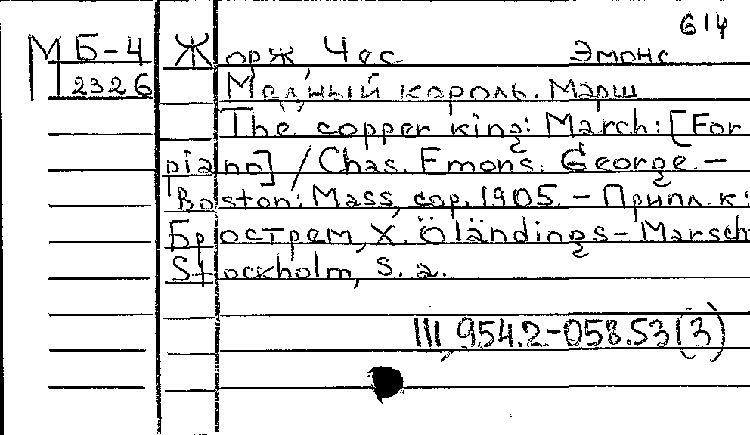 614
М Б-4 Жорж, Чес Эмонс
2326 Медный король. Марш
The copper king: March: [For
piano] / Chas. Emons. George. –
Boston: Mass, cop. 1905. – Припл. к:
Брострем, Х. Öländings – Marsch
Stockholm, S. a.
III, 954.2-058.53(3)